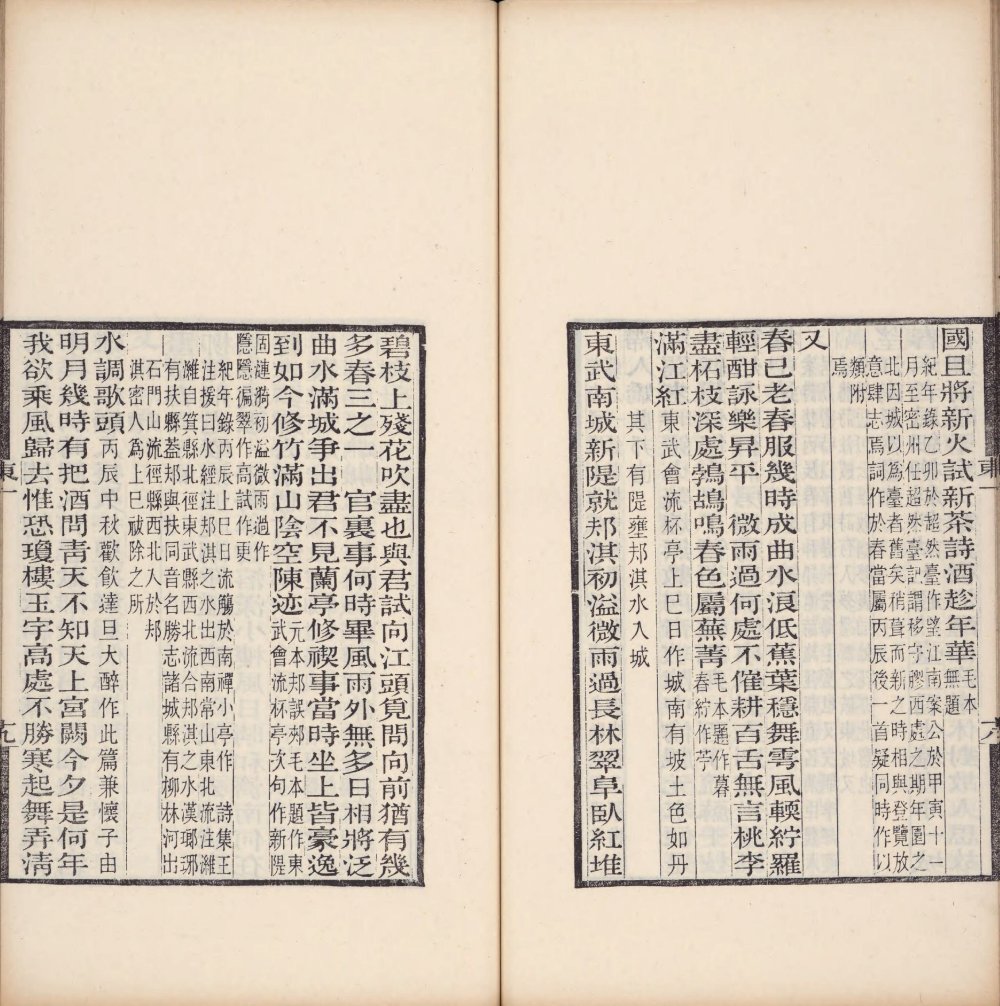 國且將新火試新茶詩酒趁年華毛本無題
紀年錄乙卯於超然臺作望江南案公於甲寅十一
月至密州任超然臺記謂移守膠西處之期年園之
北因城以爲臺者舊矣稍葺而新之時相與登覽放
意肆志焉詞作於春當屬丙辰後一首疑同時作以
類附
焉
又
春已老春服幾時成曲水浪低蕉葉穩舞雩風輭紵羅
輕酣詠樂昇平 微雨過何處不催耕百舌無言桃李
盡柘枝深處鵓鴣鳴春色屬蕪菁毛本題作暮春紵作苧
滿江紅東武會流杯亭上巳日作城南有坡土色如丹
其下有隄壅邞淇水入城
東武南城新隄就邞淇初溢微雨過長林翠阜臥紅堆
東一
六
碧枝上殘花吹盡也與君試向江頭覓問向前猶有幾
多春三之一 官裏事何時畢風雨外無多日相將泛
曲水滿城爭出君不見蘭亭修禊事當時坐上皆豪逸
到如今修竹滿山陰空陳迹元本邞誤郟毛本題作東武會流杯亭次句作新隄
固漣漪初溢微雨過作
隱隱徧翠作高試作更
紀年錄丙辰上巳日流觴於南禪小亭作 詩集王
注援曰水經注邞淇之水出西南常山東北流注濰
濰自箕縣北徑東武縣西北流合邞淇之水漢瑯琊
有扶縣蓋邞與扶同音名勝志諸城縣有柳林河出
石門山流徑縣西北入於邞
淇密人爲上巳祓除之所
水調歌頭丙辰中秋歡飲達旦大醉作此篇兼懷子由
明月幾時有把酒問靑天不知天上宮闕今夕是何年
我欲乘風歸去惟恐瓊樓玉宇高處不勝寒起舞弄淸
東一
九